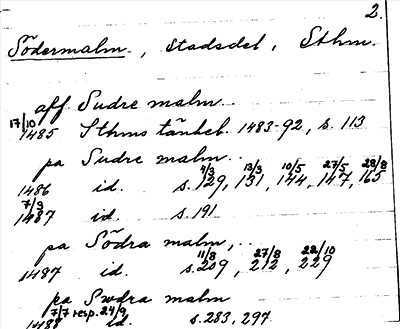 2.
Södermalm, stadsdel, Sthm.
aff Sudre malm
17/10
1485 Sthms tänkeb. 1483-92, s. 113
pa Sudre malm..
4/3 13/3 10/5 27/5 28/8
1486 id. s. 129, 131, 144, 147, 165
7/3
1487 id. s. 191
pa Södra malm,..
11/8 27/8 22/10
1487 id. s. 209, 212, 229
pa Swdra malm
7/7 resp. 24/9
1488 id. s. 283, 297.